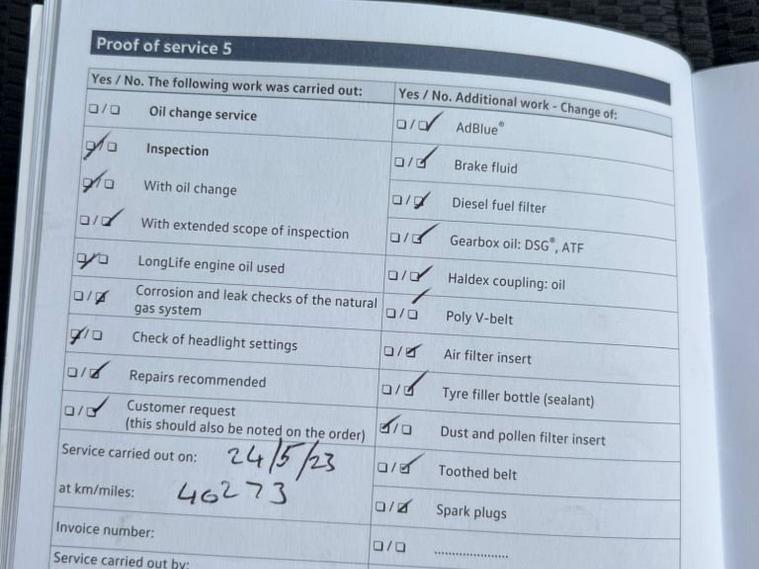 Proof of service 5
Yes / No. The following work was carried out:
☐/☐ Oil change service
☑/☐ Inspection
☑/☐ With oil change
☐/☑ With extended scope of inspection
☑/☐ LongLife engine oil used
☐/☑ Corrosion and leak checks of the natural
gas system
☑/☐ Check of headlight settings
☐/☑ Repairs recommended
☐/☑ Customer request
(this should also be noted on the order)
Service carried out on: 24/5/23
at km/miles: 46273
Invoice number:
Service carried out by:
Yes / No. Additional work - Change of:
☐/☑ AdBlue®
☐/☑ Brake fluid
☐/☑ Diesel fuel filter
☐/☑ Gearbox oil: DSG®, ATF
☐/☑ Haldex coupling: oil
☐/☐ Poly V-belt
☐/☑ Air filter insert
☐/☑ Tyre filler bottle (sealant)
☑/☐ Dust and pollen filter insert
☐/☑ Toothed belt
☐/☑ Spark plugs
☐/☐ ....................